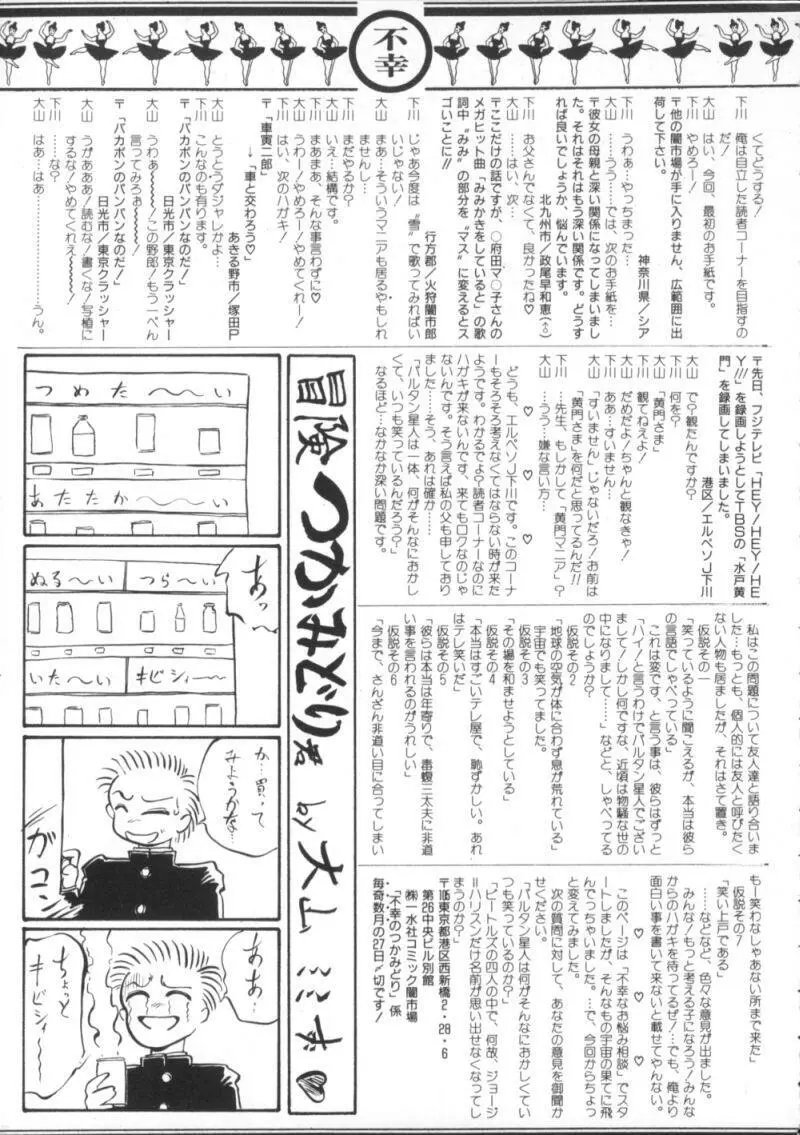 不幸
くてどうする!
下川 俺は自立した読者コーナーを目指すの
だ!
大山 はい、今回、最初のお手紙です。
下川 やめろー!
〒他の闇市場が手に入りません、広範囲に出
荷して下さい。
神奈川県/シア
下川 うわぁ…やっちまった…
大山 ……うう……では、次のお手紙を…
〒彼女の母親と深い関係になってしまいまし
た。それはそれはもう深い関係です。どうす
れば良いでしょうか、悩んでいます。
北九州市/政尾早和恵(♂)
下川 お父さんでなくて、良かったね♡
大山 ……はい、次…
〒ここだけの話ですが、○府田マ○子さんの
メガヒット曲「みみかきをしていると」の歌
詞中〝みみ〟の部分を〝マス〟に変えるとス
ゴイことに!!
行方郡/火狩闇市郎
下川 じゃあ今度は〝雪〟で歌ってみればい
いじゃない!
大山 まぁ…そういうマニアも居るやもしれ
ませんし…
下川 まだやるか?
大山 いえ…結構です。
下川 まあまあ、そんな事言わずに♡
大山 うわー!やめろー!やめてくれー!
下川 はい、次のハガキ!
〒「車寅二郎」
↓「車と交わろう♡」
あきる野市/塚田P
大山 とうとうダジャレかよ…
下川 こんなのも有ります。
〒「バカボンのパンパンなのだ!」
日光市/東京クラッシャー
大山 うわぁ〜〜〜〜!この野郎!もう一ぺん
言ってみろぉ〜〜〜〜!
〒「バカボンのパンパンなのだ!」
日光市/東京クラッシャー
大山 うがぁあああ!読むな!書くな!写植に
するな!やめてくれぇ〜〜〜〜!
下川 ……な?
大山 はぁ…はぁ……………………うん。
〒先日、フジテレビ「HEY!HEY!HE
Y!!!」を録画しようとしてTBSの「水戸黄
門」を録画してしまいました。
港区/エルペソJ下川
大山 で?観たんですか?
下川 何を?
大山 「黄門さま」
下川 観てねえよ!
大山 だめだよ!ちゃんと観なきゃ!
下川 ああ…すいません…
大山 「すいません」じゃないだろ!お前は
「黄門さま」を何だと思ってるんだ!!
下川 …先生、もしかして「黄門マニア」?
大山 …うぅ…嫌な言い方…
♡ ♡ ♡
どうも、エルペソJ下川です。このコーナ
ーもそろそろ考えなくてはならない時が来た
ようです。わかるでよ?読者コーナーなのに
ハガキが来ないんです、来てもロクなのじゃ
ないんです。そう言えば私の父も申しており
ました……そう、あれは確か……
「バルタン星人は一体、何がそんなにおかし
くて、いつも笑っているんだろう?」
なるほど…なかなか深い問題です。
私はこの問題について友人達と語り合いま
した…もっとも、個人的には友人と呼びたく
ない人物も居ましたが、それはさて置き。
仮説その一
「笑っているように聞こえるが、本当は彼ら
の言語でしゃべっている」
これは変です、と言う事は、彼らはずっと
「ハイ!と言うわけでバルタン星人でござい
まして!しかし何ですな、近頃は物騒な世の
中になりまして……」などと、しゃべってる
のでしょうか?
仮説その2
「地球の空気が体に合わず息が荒れている」
宇宙でも笑ってました。
仮説その3
「その場を和ませようとしている」
仮説その4
「本当はすごいテレ屋で、恥ずかしい。あれ
はテレ笑いだ」
仮説その5
「彼らは本当は年寄りで、毒蝮三太夫に非道
い事を言われるのがうれしい」
仮説その6
「今まで、さんざん非道い目に合ってしまい
もー笑わなしゃあない所まで来た」
仮説その7
「笑い上戸である」
……などなど、色々な意見が出ました。
みんな!もっと考える子になろう!みんな
からのハガキを待ってるぜ!…でも、俺より
面白い事を書いて来ないと載せてやんない。
♡ ♡ ♡
このページは「不幸なお悩み相談」でスタ
ートしましたが、そんなもの宇宙の果てに飛
んでっちゃいました。…で、今回からちょっ
と変えてみました。
次の質問に対して、あなたの意見を御聞か
せください。
「バルタン星人は何がそんなにおかしくてい
つも笑っているのか?」
「ビートルズの四人の中で、何故、ジョージ
=ハリスンだけ名前が思い出せなくなってし
まうのか?」
〒105東京都港区西新橋2・28・6
第26中央ビル別館
㈱一水社コミック闇市場
「不幸のつかみどり」係
毎奇数月の27日〆切です!
冒険つかみどり君 by 大山ミミず♡
つめた〜〜い
あたたか〜〜い
あっ〜
ぬる〜い
つら〜い
いた〜い
キビシィー
か…買って
みようかな…
ガコン
ああ…
ちょっと
キビシィ〜